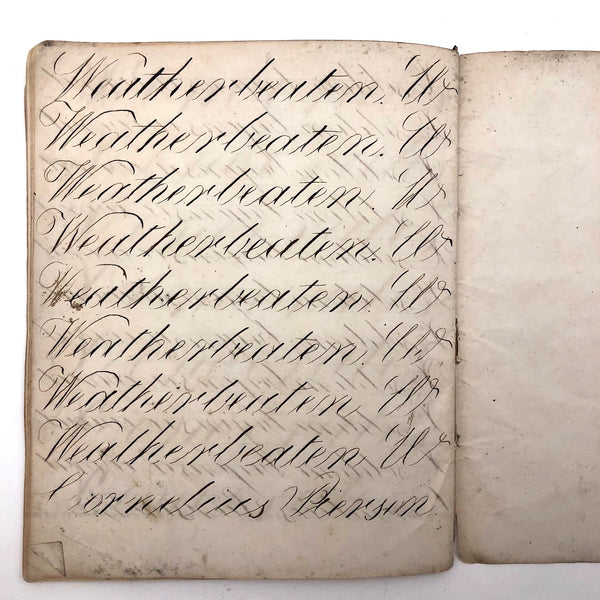 Weatherbeaten. W
Weatherbeaten. W
Weatherbeaten. W
Weatherbeaten. W
Weatherbeaten. W
Weatherbeaten. W
Weatherbeaten. W
Weatherbeaten. W
Cornelius Peterson